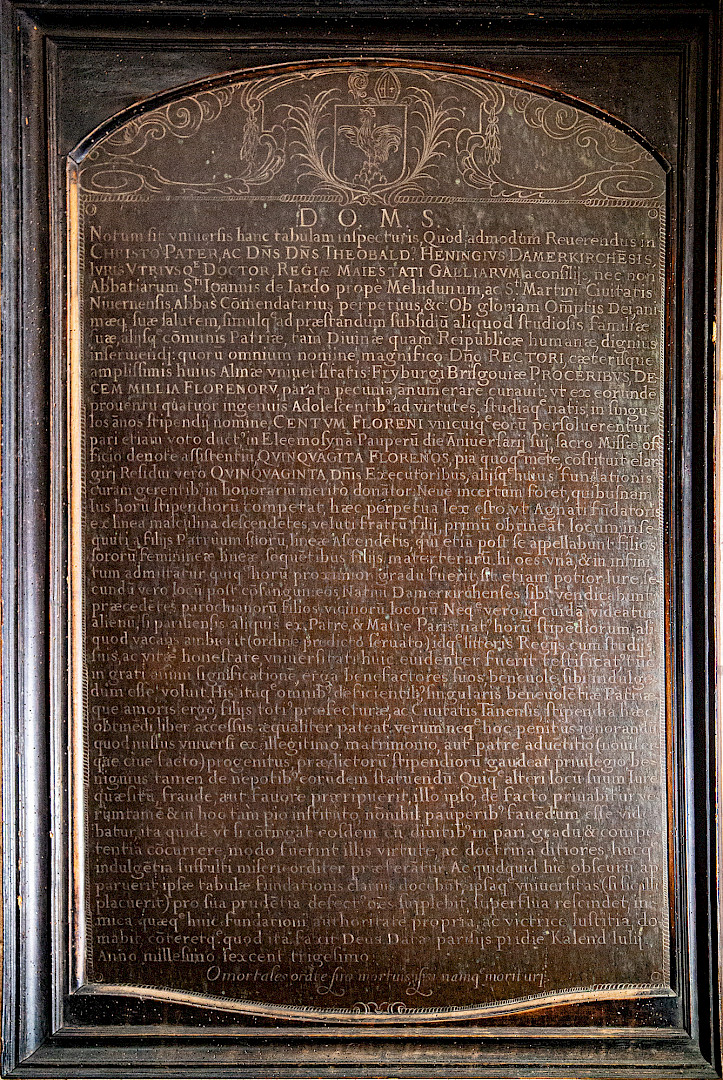 D. O. M. S.
Notum sit vniuersis hanc tabulam inspecturis, Quod admodum Reuerendus in
CHRISTO PATER, AC DÑS DÑS THEOBALD. HENINGIVS DAMERKIRCHĒSIS,
IVRIS VTRIVSQ. DOCTOR, REGIÆ MAIESTATI GALLIARVM a consilijs, nec non
Abbatiarum Sti Ioannis de Iardo prope Meludunum, ac Sti Martini Ciuitatis
Niuernensis Abbas Cōmendatarius perpetuus, &c. Ob gloriam Om̃ptis Dei, ani
mæq, suæ salutem, simulq, ad præstandum subsidiū aliquod studiosis familiæ
suæ, alijsq, cōmunis Patriæ, tam Diuinæ quam Reipublicæ humanæ, dignius
inseruiendi: quorū omnium nomine, magnifico Dño RECTORI, cæterisque
amplissimis huius Almæ vniuersitatis Fryburgi Brisgouiæ PROCERIBVS, DE
CEM MILLIA FLORENORV̄ parata pecunia, anumerare curauit, vt ex eorunde
prouentu quatuor ingenuis Adolescentib, ad virtutes, studiaq, natis, in singu
los años stipendij nomine, CENTVM FLORENI vnicuiq, eorū persoluerentur
pari etiam voto duct, in Eleemosynā Pauperū die Aniuersarij sui, sacro Missæ of
ficio deuote assistentiū QVINQVAGĪTA FLORENOS, pia quoq, mēte, cōstituit elar
giri, Residui vero QVINQVAGINTA, Dñis Executoribus, alijsq, huius fundationis
curam gerentib, in honorariū merito donator. Neue incertum foret, quibusnam
Ius horū stipendiorū competat, hæc perpetua lex esto, vt Agnati fundatoris
ex linea masculina descendētes, veluti fratrū filij, primū obtineāt locum, inse
quuti, filijs Patruum suorū lineæ Ascendētis, qui etiā post se appellabunt filios
sororū femineæ lineæ, sequētibus filijs materterarū, hi oēs vnā, & in infini
tum admittātur, quiq, horū proximior gradu fuerit, sit etiam potior Iure, se
cundū vero locū post cōsanguineos, Natiui Damerkirchenses sibi vendicabunt
præcedētes parochianorū filios, vicinorū locorū. Neq, vero id cuidā videatur
alienū, si parisiensis aliquis ex Patre & Matre Paris: nat, horū stipēdiorum, ali
quod vacans ambierit (ordine præscripto seruato) idq, litteris Regijs, cum studij
sui, ac vitæ honestate, vniuersitati huic euidenter fuerit testificat,
in grati animi significationē, erga benefactores suos, beneuole, sibi indulge
dum esse voluit. His itaq, omnib, deficientib, singularis beneuolētiæ Patriæ
que amoris ergo, filijs toti, præfecturæ, ac Ciuitatis Tanensis, stipendia hæc
obtinēdi liber accessus æqualiter pateat, verum neq, hoc penitus ignorand,
quod nullus vniuersi ex illegitimo matrimonio, aut patre aductitio
progenitus, prædictorū stipendiorū gaudeat priuilegio be
nignius tamen de nepotib, eorūdem statuendū. Quiq, alteri locū suum Iure
quæsitū, fraude, aut fauore præripuerit, illo ipso, de facto priuabitur, ve
rumtamē & in hoc tam pio instituto, nonihil pauperib, fauedum esse vide
batur, ita quide vt si cōtingat eosdem cū diuitib, in pari gradu & compe
tentia cōcurrere, modo fuerint illis virtute, ac doctrina ditiores, hac
indulgētia suffulti misericorditer præferātur. Ac quidquid hic obscurū, ap
paruerit, ipsæ tabulæ fundationis danūs docebūt, ipsaq, vniuersitas (si sic illi
placuerit) pro sua prudētia defect, oēs supplebit, superflua rescindet, ini
mica quæq, huic fundationi, authoritate propria, ac victrice Iustitia, do
mabit, cōteretq, quod ita faxit Deus. Datæ parisijs pridie Kalend: Iulij
Anno millesimo sexcent: trigesimo.
O mortales orate pro mortuis, ipsi namq, morituri.